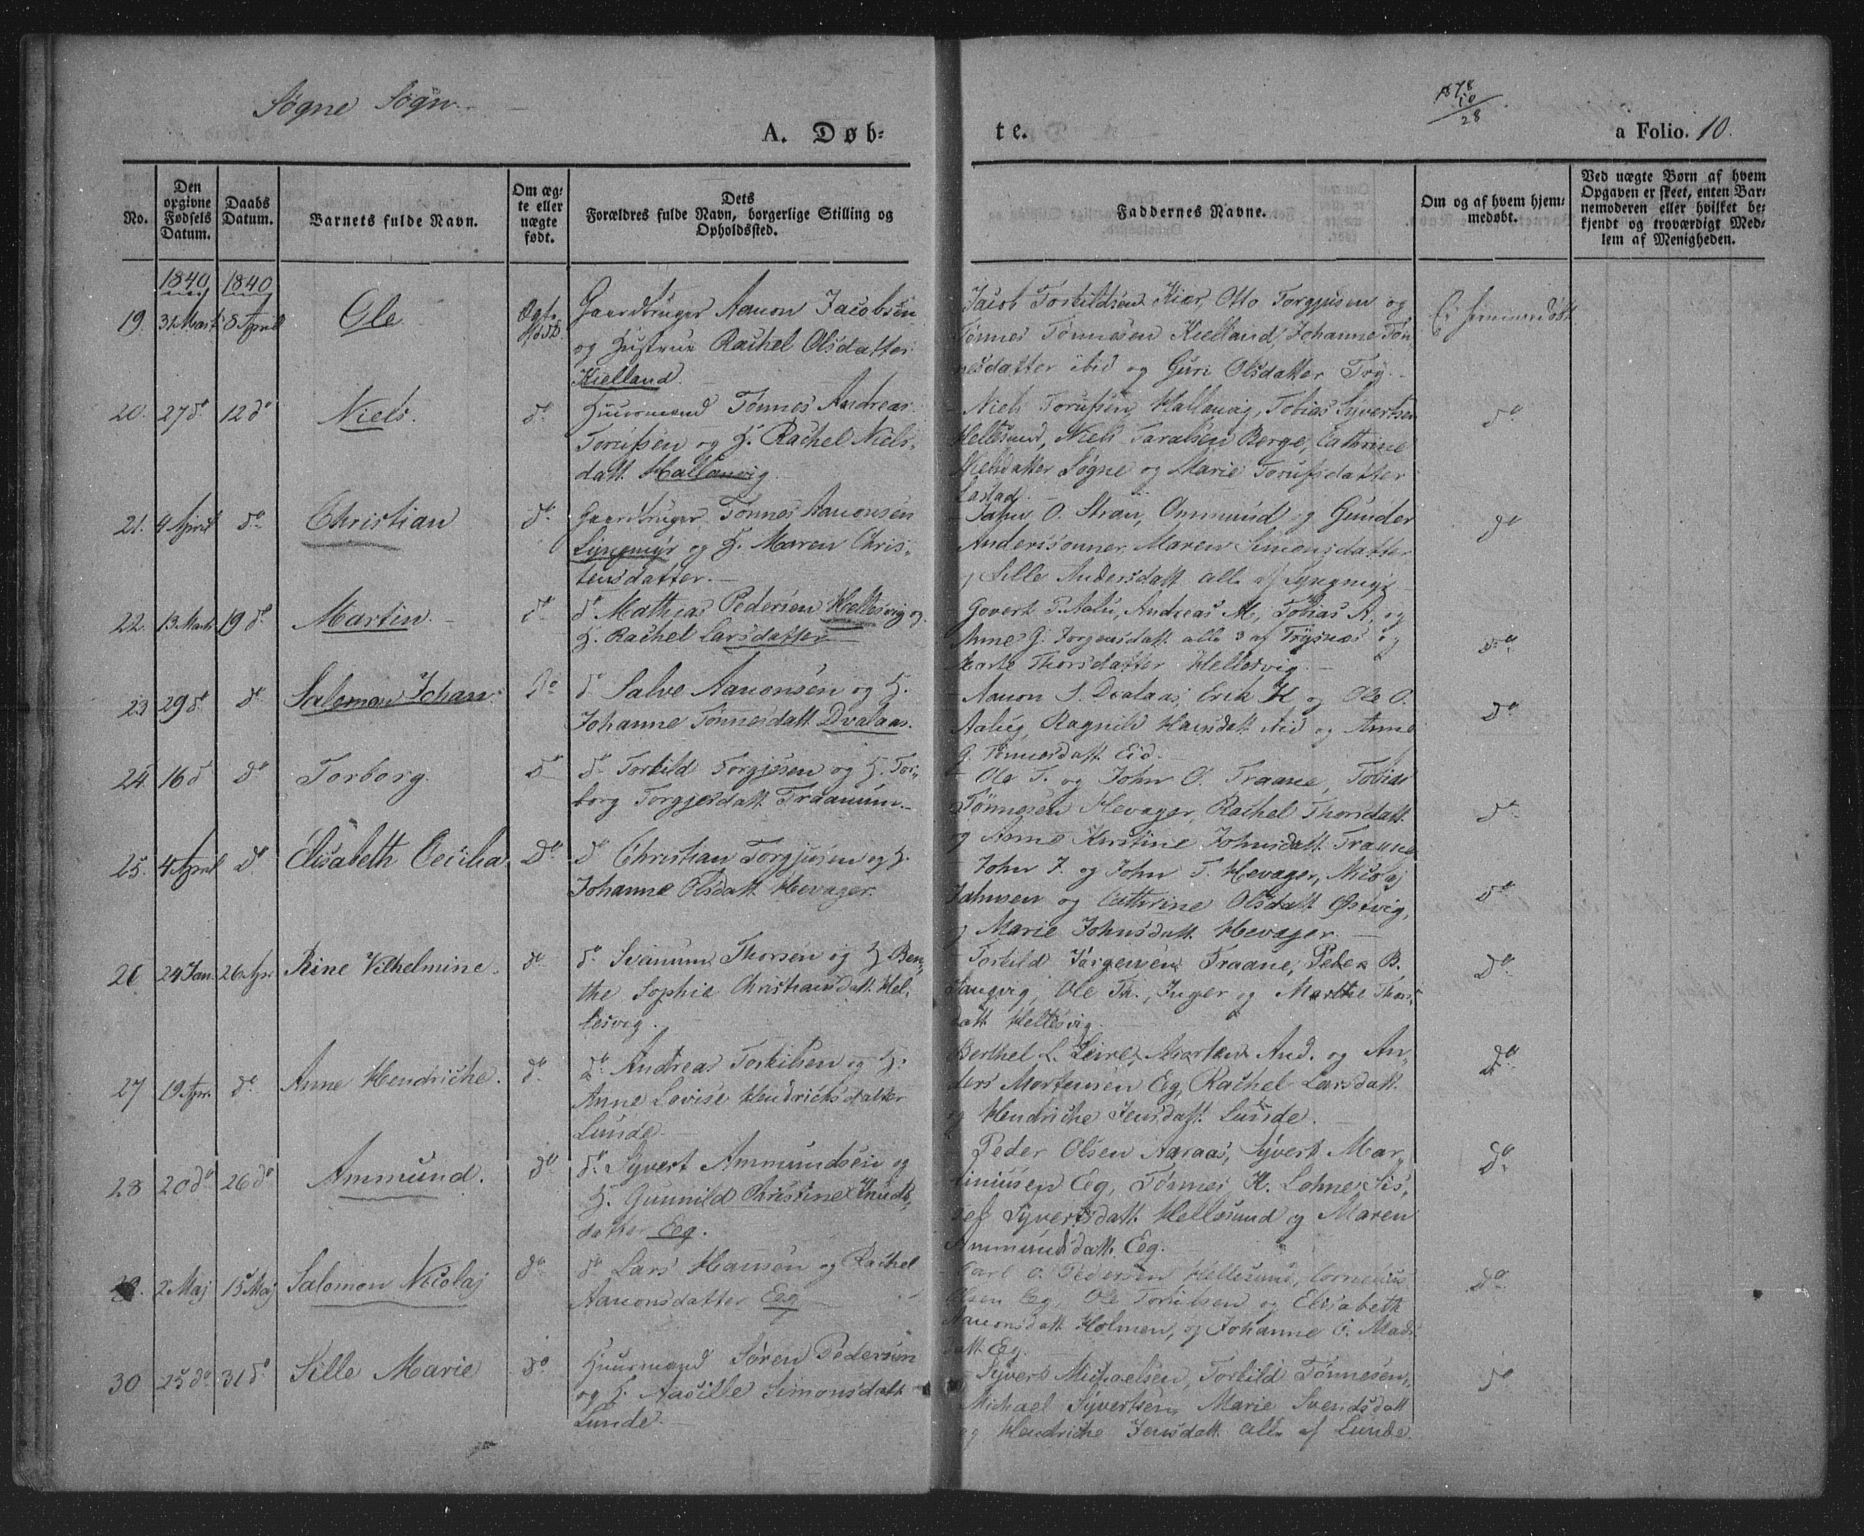 Søgne Sogn
1878
10
28
A. Døb-
te.
a Folio. 10.
No.
Den opgivne Fødsels Datum.
Daabs Datum.
Barnets fulde Navn.
Om ægte eller nægte født.
Dets Forældres fulde Navn, borgerlige Stilling og Opholdssted.
Faddernes Navne.
Om og af hvem hjemmedøbt.
Ved uægte Børn af hvem Opgaven er skeet, enten Barnemoderen eller hvilket bekjendt og troværdigt Medlem af Menigheden.
1840 1840
19. 31 Marts 8 April Ole Ægte
Gaardbruger Aanon Jacobsen
og Hustrue Rachel Olsdatter
Kielland.
Jacob Torkildsen Kiær, Otto Torgjusen og
Tønnes Tønnesen Kielland, Johanne Tøn-
nesdatter ibid og Guri Olsdatter Try.
Er hjemmedøbt
20. 27 d° 12 d° Niels. d°
Huusmand Tønnes Andreas
Torufsen og H. Rachel Niels-
datt. Hallanvig.
Niels Torufsen Hallanvig, Tobias Syvertsen
Hellesund, Niels Taralsen Berge, Cathrine
Nielsdatter Søgne og Marie Torufsdatter
Lastad.
d°
21. 4 April d° Christian d°
Gaardbruger Tønnes Aanonsen
Lyngmyr og H. Maren Chris-
tensdatter.
Jahn O. Stran, Ommund og Gunder
Anderssønner, Maren Simonsdatter
og Sille Andersdatt. alle af Lyngmyr
d°
22. 13 Marts 19 d° Martin d°
d° Mathias Pedersen Hellesvig og
H. Rachel Larsdatter
Govert P. Aalu, Andreas M., Tobias A. og
Anne G. Jorgensdatt. alle 3 af Trysnæs og
Marte Thorsdatter Hellesvig.
d°
23 29 d° d° Salomon Johan d°
d° Salve Aanonsen og H.
Johanne Tønnesdatt. Dvalaas.
Aanon S. Dvalaas, Erik H. og Ole O.
Aaleg, Ragnild Hansdatt. Aid og Anne
G. Tønnesdatt. Eid.
d°
24. 16 d d° Torborg. d°
d° Torkild Torgjesen og H. Tor-
borg Torgjersdatt. Traanum.
Ole T. og John O. Traane, Tobias
Tønnesen Hevager, Rachel Thorsdatt.
og Anne Kirstine Johnsdatt. Traane
d°
25. 4 April d° Elisabeth Cecilia d°
d° Christian Torgjusen og H.
Johanne Olsdatt. Hevager.
John J. og John T. Hevager, Nicolaj
Jahnsen og Cathrine Olsdatt. Østvig,
og Marie Johnsdatt. Hevager.
d°
26 24 Jan. 26 Apr. Rine Vilhelmine. d°
d° Svanum Thorsen og H. Ben-
the Sophie Christiansdatt. Hel-
lesvig.
Torkild Jørgensen Traane, Peder B.
Langvig, Ole Th., Inger og Marthe Thors-
datt. Hellesvig.
d°
27 19 Apr. d° Anne Hendriche. d°
d° Andreas Torkilsen og H.
Anne Lovise Hendrichsdatter
Lunde.
Berthel L. Leire, Morten And. og An-
ders Mortensen Eg, Rachel Larsdatt.
og Hendriche Jensdatt. Lunde.
d°
28 20 d° 26 d° Ammund. d°
d° Syvert Ammundsen og
H. Gunnild Christine Knuds-
datter Eeg.
Peder Olsen Aaraas, Syvert Mar-
tiniusen Eeg, Tønnes K. Lohne, Sis-
sel Syvertsdatt. Hellesund og Maren
Ammundsdatt. Eeg.
d°
29. 2 Maj 15 Maj Salomon Nicolaj d°
d° Lars Hansen og Rachel
Aanonsdatter Eeg
Carl O. Pedersen Hellesund, Cornelius
Olsen Eeg, Ole Torkilsen og Elisabeth
Aanonsdatt. Holmen, og Johanne O. Mads-
datt. Eeg.
d°
30 25 d° 31 d° Sille Marie d°
Huusmand Søren Pedersen
og H. Aasille Simonsdatt.
Lunde.
Syvert Michaelsen, Torkild Tønnesen,
Michael Syvertsen, Marie Svendsdatt.
og Hendriche Jensdatt. alle af Lunde.
d°